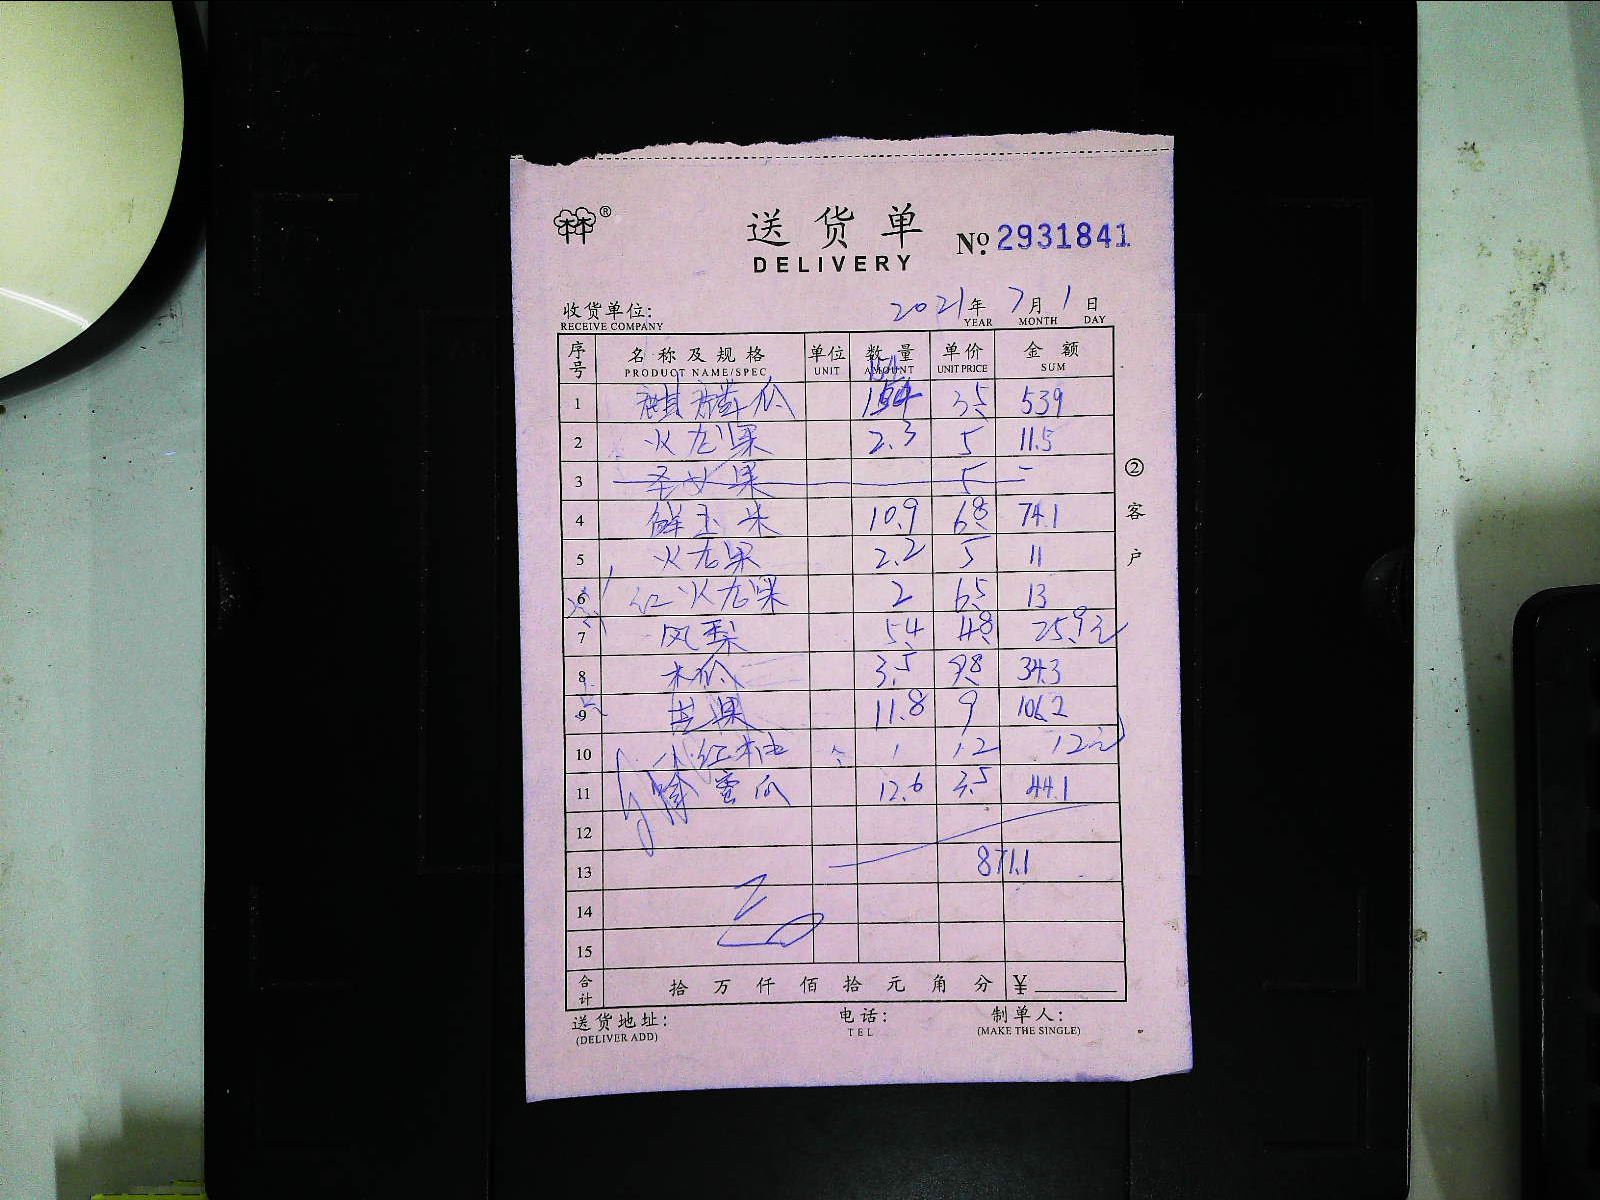 林林®
送货单
DELIVERY
№ 2931841
收货单位:
RECEIVE COMPANY
2021年 7月 1日
YEAR MONTH DAY
序号 名称及规格 单位 数量 单价 金额
PRODUCT NAME/SPEC UNIT AMOUNT UNIT PRICE SUM
1 麒麟瓜 154 3.5 539
2 火龙果 2.3 5 11.5
3 圣女果 5
4 鲜玉米 10.9 6.8 74.1
5 火龙果 2.2 5 11
6 红火龙果 2 6.5 13
7 凤梨 5.4 4.8 25.9元
8 木瓜 3.5 9.8 34.3
9 芒果 11.8 9 106.2
10 小红柚 个 1 12 12元
11 蜜瓜 12.6 3.5 44.1
12
13 871.1
14
15
合计 拾 万 仟 佰 拾 元 角 分 ¥
送货地址: 电话: 制单人:
(DELIVER ADD) TEL (MAKE THE SINGLE)
② 客户